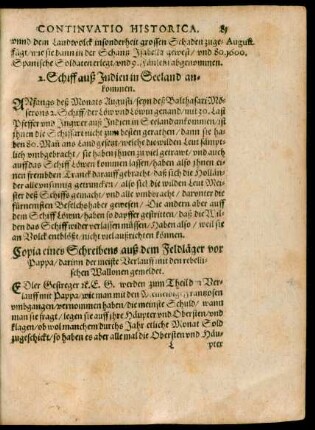 CONTINVATIO HISTORICA. 81
vnnd dem Landvolck insonderheit grossen Schaden zuge- August.
fügt/ wie sie dann in der Schantz Isabella gewest/ vnd 80. 1600.
Spanische Soldaten erlegt/ vnd 9. Fänlein abgenommen.
2. Schiff auß Indien in Seeland an-
kommen.
ANfangs deß Monats Augusti/ seyn deß Balthasari Mo-
serons 2. Schiff/ der Löw vnd Löwin genand/ mit 30. Last
Pfeffer vnd Ingwer auß Indien in Seeland ankommen/ ist
ihnen die Schiffart nicht zum besten gerathen/ dann sie ha-
ben 80. Man ans Land gesetzt/ welche die wilden Leut sämpt-
lich vmbgebracht/ sie haben ihnen zu viel getrawt/ vnd auch
auff das Schiff den Löwen kommen lassen/ haben also ihnen ei-
nen frembden Tranck darauff gebracht/ daß sich die Hollän-
der alle vnsinnig getruncken/ also seind die wilden Leut Mei-
ster deß Schiffs gemacht/ vnd alle vmbbracht/ darunter die
fürnemsten Befelchshaber gewesen/ Die andern aber auff
dem Schiff Löwin/ haben so dapffer gestritten/ daß die Wil-
den das Schiff wider verlassen müssen/ Haben also/ weil sie
an Volck entblößt/ nicht viel außrichten können.
Copia eines Schreibens auß dem Feldläger vor
Pappa/ darinn der meiste Verlauff mit den rebelli-
schen Wallonen gemeldet.
EDler Gestrenger ꝛc. E. G. werden zum Theil den Ver-
lauff mit Pappa/ wie man mit den Frantzosen
vmbgangen/ vernommen haben/ die meinste Schuld/ wann
man sie fragt/ legen sie auff ihre Häupter vnd Obersten/ vnd
klagen/ ob wol man chem durchs Jahr etliche Monat Sold
zugeschickt/ so haben es aber alle mal die Obersten vnd Häu-
L pter